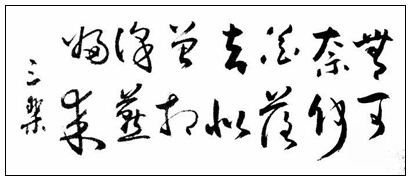 無可
奈何
花落
去似
曾相
識燕
歸來
三樂